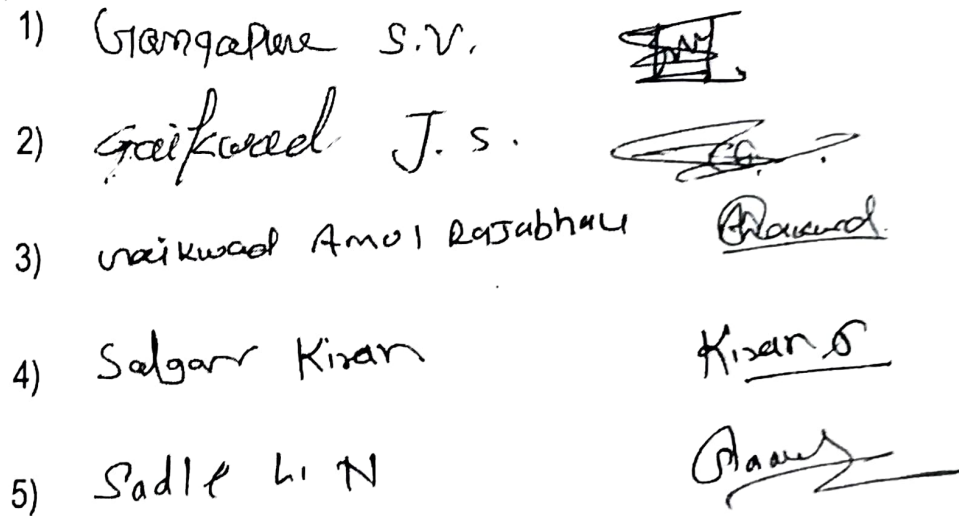 1) Gangapure S.V.
2) Gaikwad J.S.
3) Gaikwad Amol Rajabhau
4) Salgar Kiran Kiran S
5) Sadle h. N